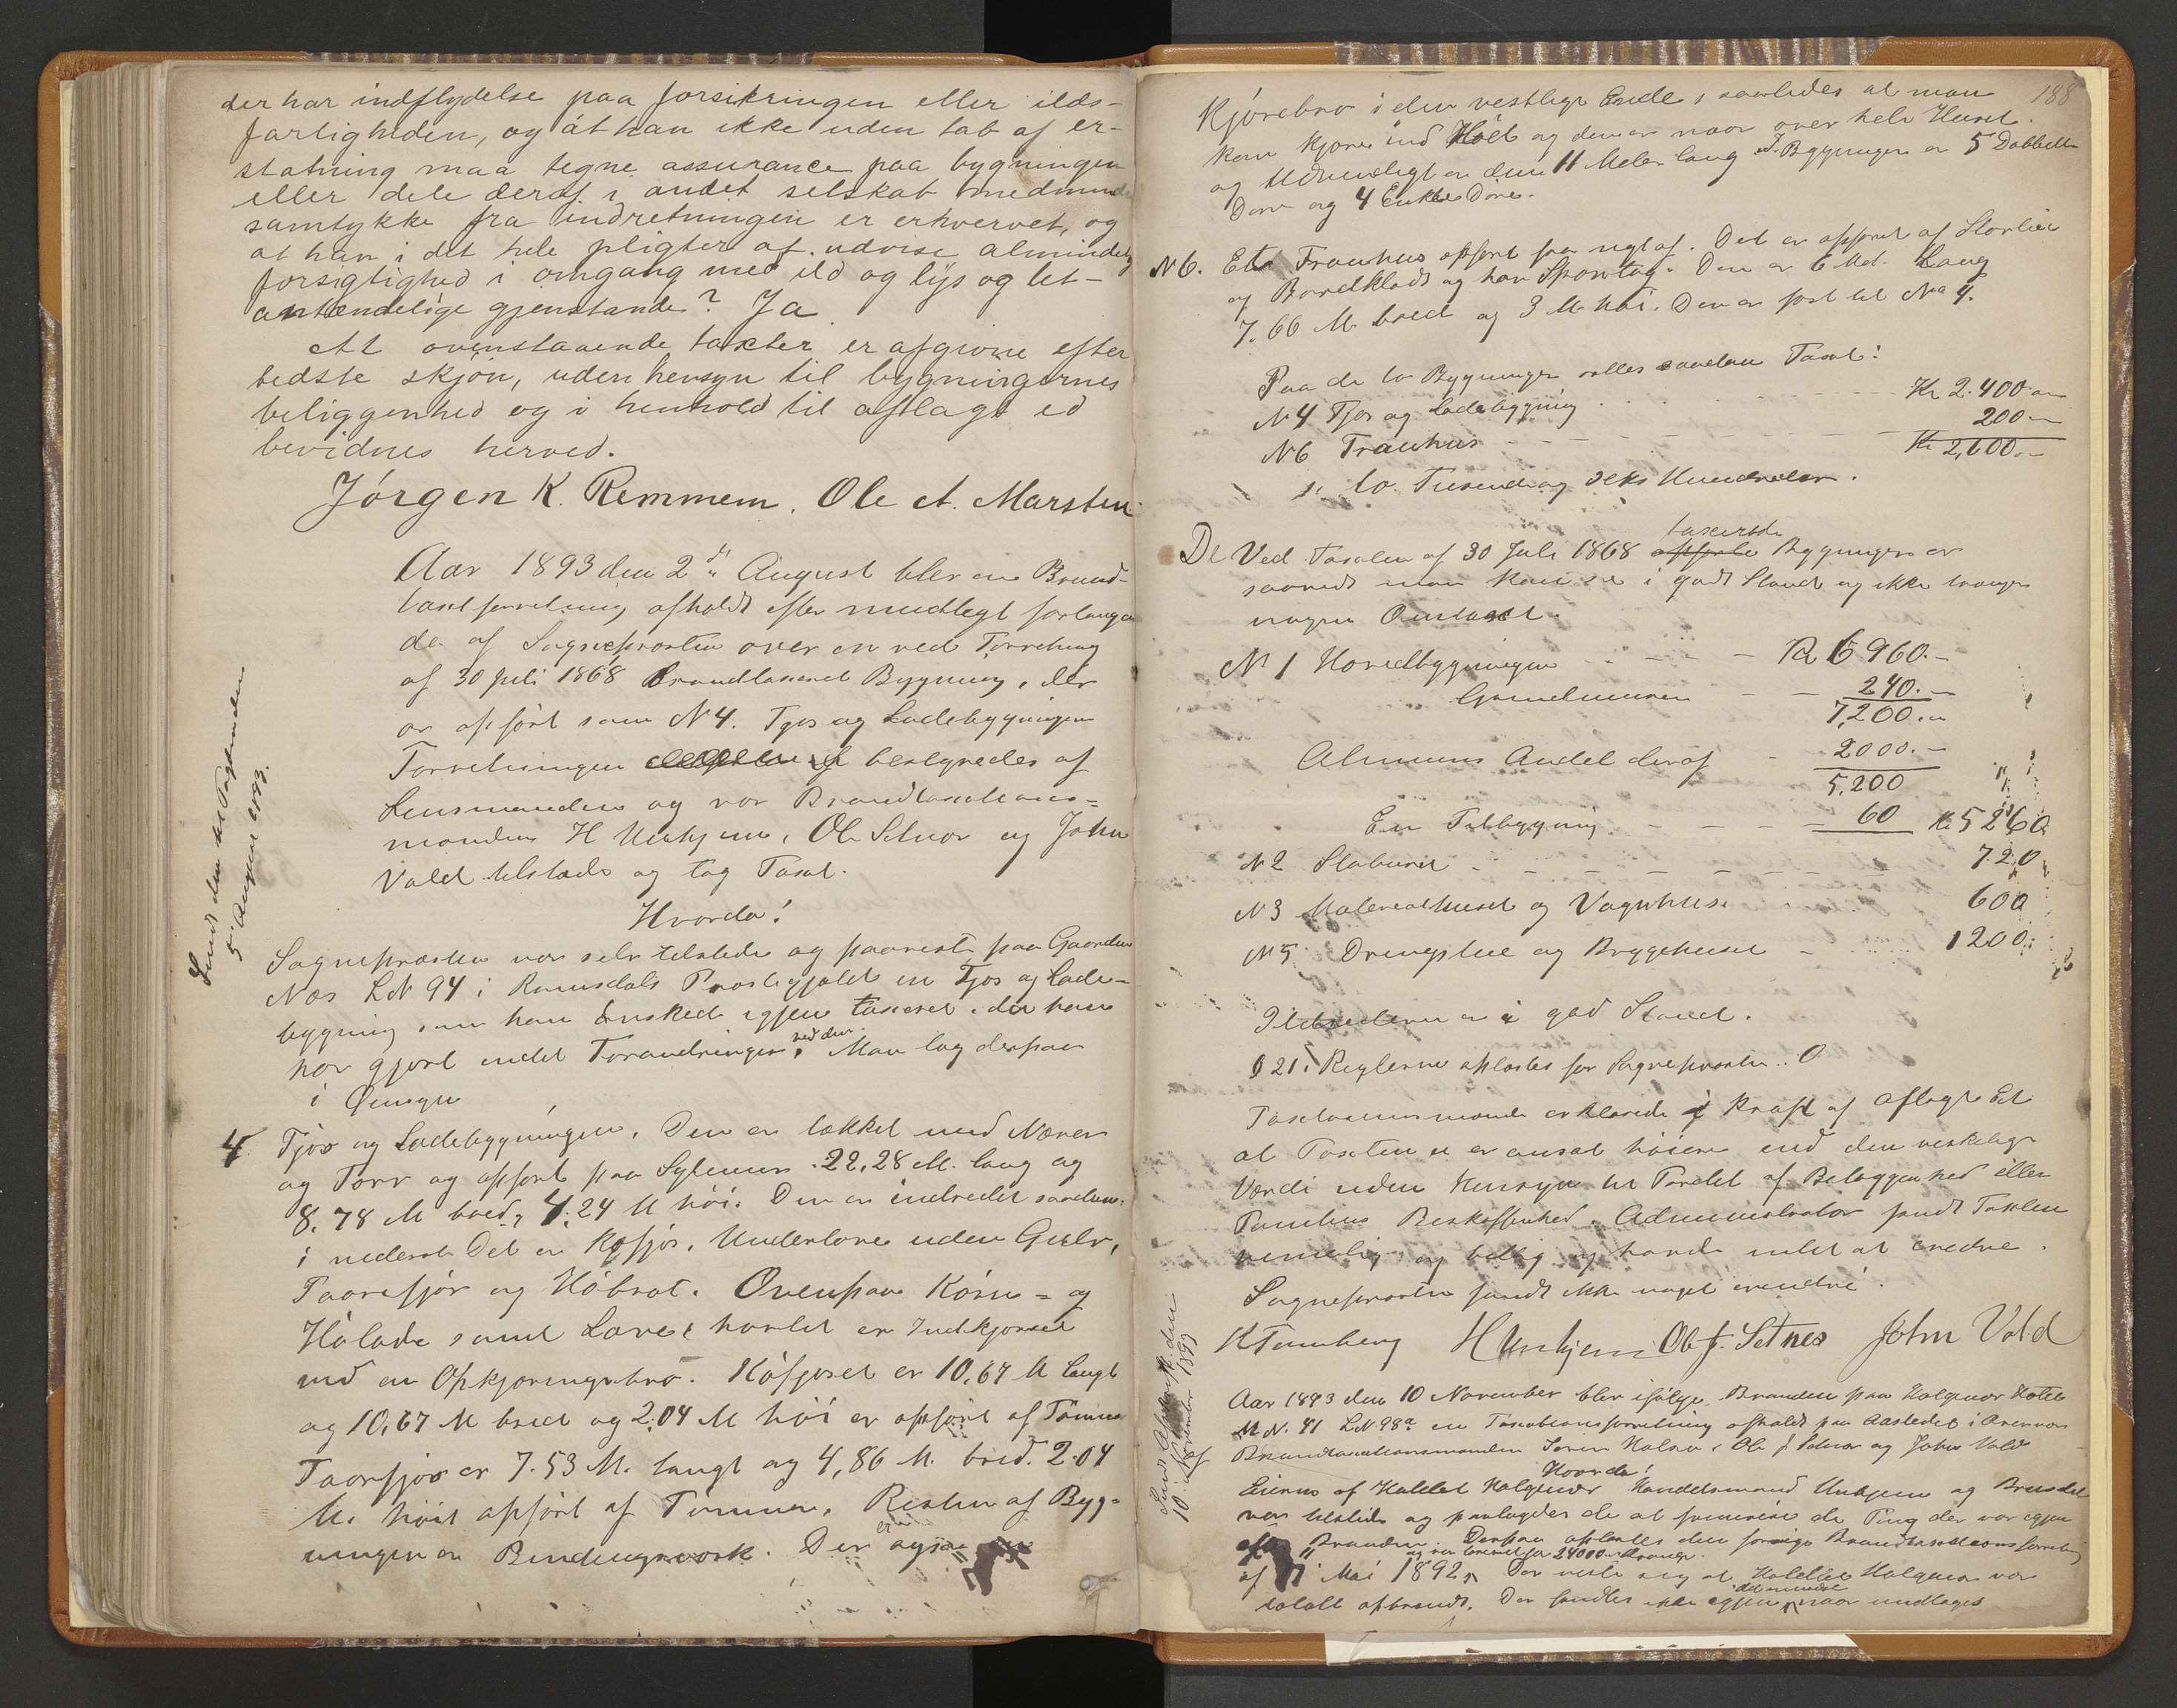 der har indflydelse paa forsikringen eller ilds-
farligheden, og at han ikke uden tab af er-
statning maa tegne assurance paa bygningen
eller dele deraf i andet selskab medmind
samtykke fra indretningen er erhvervet, og
at han i det hele pligter at udvise almindelig
forsigtighed i omgang med ild og lys og let-
antændelige gjenstande? Ja
At ovenstaaende takster er afgivne efter
bedste skjøn, uden hensyn til bygningernes
beliggenhed og i henhold til aflagt ed
bevidnes herved.
Jørgen K. Remmem, Ole A. Marsten
Aar 1893 den 2de August blev en Brand-
taxtforretning afholdt efter mundtlegt forlangen
de af Sognepresten over en ved Forretning
af 30 juli 1868 brandtaxeret Bygning, der
er opført som N 4. Fjos og Ladebygningen
Forretningen bestyredes af
Lensmanden og var Brandtaxtions=
mændene H Unhjem, Ole Setnes og John
Vold tilstede og tog Taxt.
Hvorda!
Sognepresten var selv tilstede og paaviste paa Gaarden
Næs LN 94 i Romsdals Prestegjæld en Fjos og Lade-
bygning som han ønskede igjen taxeret, da han
har gjort endel Forandringer ved den. Man tog derpaa
i Øiesyn
4 Fjøs og Ladebygningen. Den er tækket med Næver
og Torv og opført paa Sylemur. 22,28 M. lang og
8.78 M bred, 4.24 M høi. Den er indredet saaledes:
i nederst Del er Kofjøs, Underlave uden Gulv,
Faarefjøs og Høbrot. Ovenpaa Korn= og
Hølade samt Lave, hvortil er Indkjørsel
ved en Opkjøringsbro. Kofjøset er 10,67 M langt
og 10,67 M bred og 2.04 M høi er opført af Tømmer
Faarefjøs er 7.53 M. langt og 4,86 M. bred. 2.04
M. høit opført af Tømmer. Resten af Byg=
ningen er Bindingsværk. Der er ogsaa en
Sendt den til Paategnelse
5 August 1893.
188
Kjørebro i den vestlige Ende, saaledes at man
kan kjøre ind Høet og den er naar over hele Huset.
og Udvendigt er den 11 Meter lang. I Bygningen er 5 Dobbelte
Døre og 4 Enkle Døre.
N6. Et Træuhus opført paa nyt af. Det er opført af Storlie
og Bordklædt og har Spontag. Den er 6 Met. Lang
7.66 M. bred og 3 M høi. Den er først til No 4.
Paa de to Bygninger sattes saadan Taxt:
N 4 Fjos og Ladebygning Kr 2.400
N6 Træuhus 200
Kr 2,600
to Tusende og seks Hundreder.
De Ved Taxten af 30 Juli 1868 taxerte opførte Bygninger er
saavidt man kan se i god Stand og ikke trænger
nogen Omtaxt.
N 1 Hovedbygningen Kr 6960.-
Grundmuren 240.-
7,200.-
Almuens Andel deraf 2000.-
5,200
En Tilbygning 60 Kr 5260
N 2 Stabburet 720
N 3 Materialhuset og Vognhuse 600
N 5 Drengstue og Bryggehuset 1200
Ildstederne er i god Stand.
§ 21. Reglerne oplæstes for Sognepresten.
Taxtionsmænde erklærede i Kraft af aflagt Ed
at Taxten ei er ansat høiere end den virkelige
Værdi uden Hensyn til Fordel af Beliggenhed eller
Tomtens Beskaffenhed. Administrator fandt Taxten
rimelig og billig og havde intet at erindre.
Sognepresten fandt ikke noget erindre.
H Unhjem Ole J. Setnes John Vold
Aar 1893 den 10 November blev ifølge Branden paa Holgenæs Hotel
M N. 41 LN. 98a en Taxationsforretning afholdt paa Aastedet i Overvær
Brandtaxationsmændene Søren Halsa, Ole J Setnes og John Vold
Hvorda!
Eierne af Hotellet Holgenæs Handelsmand Unhjem og Brusdal
var tilstede og paalagdes de at fremvise de Ting der var igjen
efter Branden. Derpaa oplæstes den forrige Brandtaxationsforretning
og var taxeret for 24000 Kroner.
af Mai 1892. Der viste sig at Hotellet Holgenæs var
totalt opbrændt. Der fandtes ikke igjen det mindste naar undtages
10 November 1893